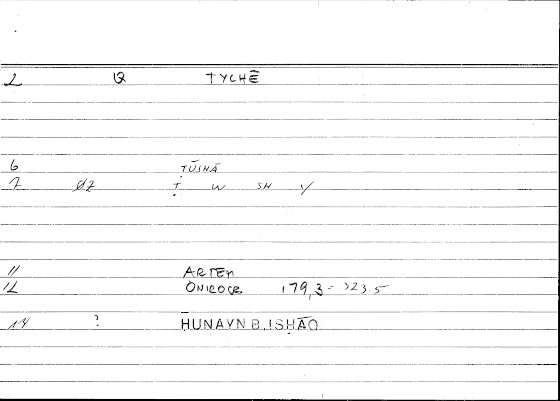 2 IQ TYCHĒ
6 ṬŪSHĀ
7 ØZ Ṭ W SH Y
11 ARTEM
12 ONIROCR 179,3 = 323.5
14 ? ḤUNAYN B. ISḤĀQ